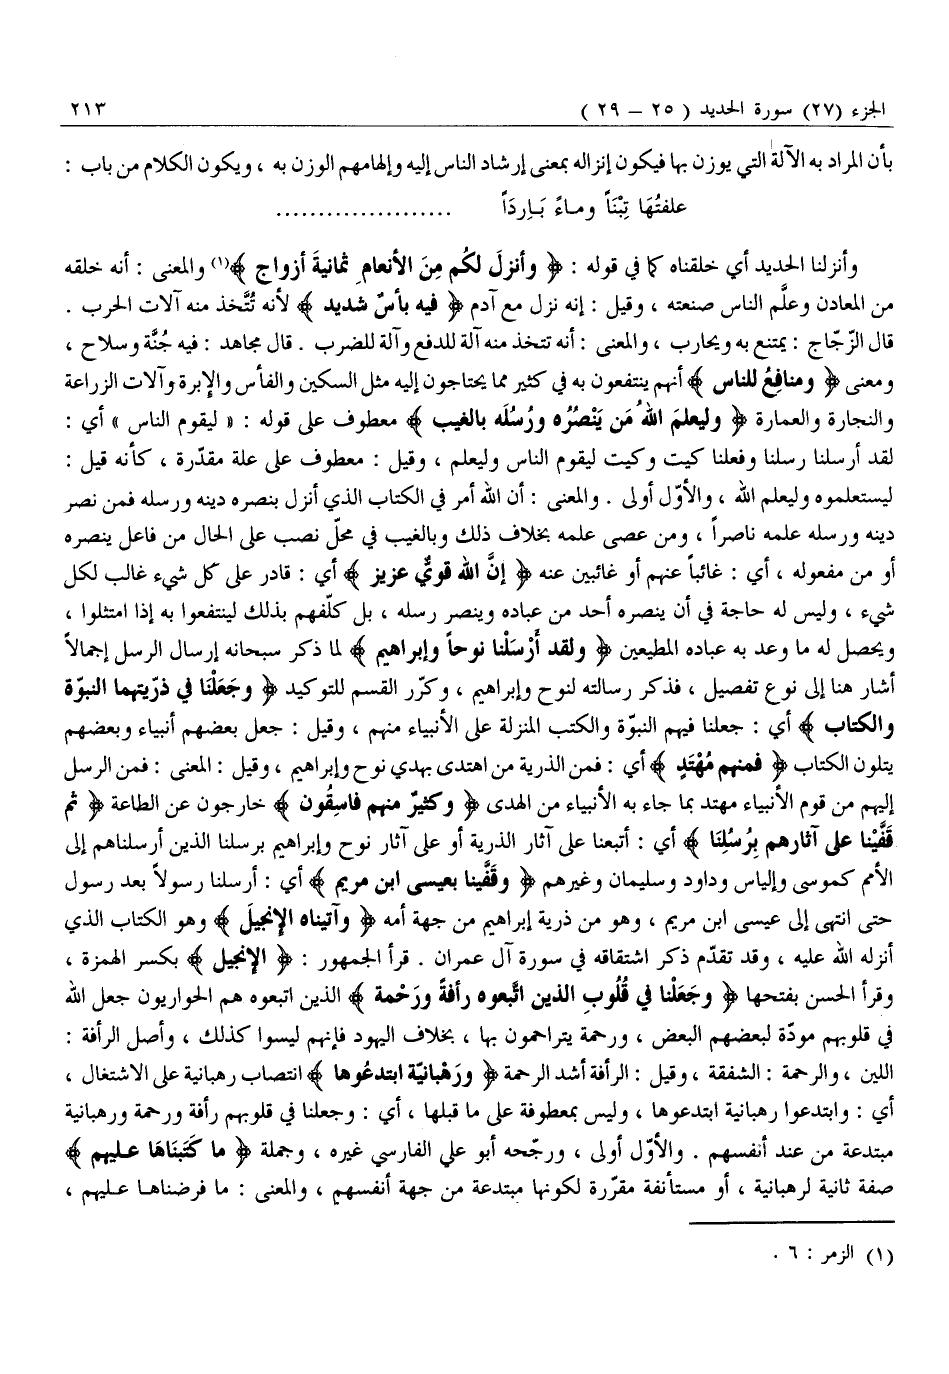 الجزء (٢٧) سورة الحديد ( ٢٥ – ٢٩ ) ٢١٣
بأن المراد به الآلة التي يوزن بها فيكون إنزاله بمعنى إرشاد الناس إليه وإلهامهم الوزن به ، ويكون الكلام من باب :
علفتُهَا تِبْنَاً ومـاءً بَـارِدَاً .....................
وأنزلنا الحديد أي خلقناه كما في قوله : ﴿ وأنزلَ لكُم مِنَ الأنعامِ ثمانيةَ أزواج ﴾(١) والمعنى : أنه خلقه
من المعادن وعلَّم الناس صنعته ، وقيل : إنه نزل مع آدم ﴿ فيه بأسٌ شديد ﴾ لأنه تُتَّخذ منه آلات الحرب .
قال الزّجاج : يمتنع به ويحارب ، والمعنى : أنه تتخذ منه آلة للدفع وآلة للضرب . قال مجاهد : فيه جُنَّة وسلاح ،
ومعنى ﴿ ومنافعُ للناس ﴾ أنهم ينتفعون به في كثير مما يحتاجون إليه مثل السكين والفأس والإبرة وآلات الزراعة
والنجارة والعمارة ﴿ وليعلمَ اللهُ مَن يَنْصُرُه ورُسُلَه بالغيب ﴾ معطوف على قوله : « ليقوم الناس » أي :
لقد أرسلنا رسلنا وفعلنا كيت وكيت ليقوم الناس وليعلم ، وقيل : معطوف على علة مقدّرة ، كأنه قيل :
ليستعلموه وليعلم الله ، والأوّل أولى . والمعنى : أن الله أمر في الكتاب الذي أنزل بنصره دينه ورسله فمن نصر
دينه ورسله علمه ناصراً ، ومن عصى علمه بخلاف ذلك وبالغيب في محلّ نصب على الحال من فاعل ينصره
أو من مفعوله ، أي : غائباً عنهم أو غائبين عنه ﴿ إنَّ الله قويٌّ عزيز ﴾ أي : قادر على كل شيء غالب لكل
شيء ، وليس له حاجة في أن ينصره أحد من عباده وينصر رسله ، بل كلّفهم بذلك لينتفعوا به إذا امتثلوا ،
ويحصل له ما وعد به عباده المطيعين ﴿ ولقد أَرْسَلْنا نوحاً وإبراهيم ﴾ لما ذكر سبحانه إرسال الرسل إجمالاً
أشار هنا إلى نوع تفصيل ، فذكر رسالته لنوح وإبراهيم ، وكرّر القسم للتوكيد ﴿ وجَعَلْنَا في ذرّيتهما النبوّة
والكتاب ﴾ أي : جعلنا فيهم النبوّة والكتب المنزلة على الأنبياء منهم ، وقيل : جعل بعضهم أنبياء وبعضهم
يتلون الكتاب ﴿ فمنهم مُهْتَدٍ ﴾ أي : فمن الذرية من اهتدى بهدي نوح وإبراهيم ، وقيل : المعنى : فمن الرسل
إليهم من قوم الأنبياء مهتد بما جاء به الأنبياء من الهدى ﴿ وكثيرٌ منهم فاسِقُون ﴾ خارجون عن الطاعة ﴿ ثم
قَفَّيْنا على آثارهم بِرُسُلِنَا ﴾ أي : أتبعنا على آثار الذرية أو على آثار نوح وإبراهيم برسلنا الذين أرسلناهم إلى
الأمم كموسى وإلياس وداود وسليمان وغيرهم ﴿ وقَفَّينا بعيسى ابن مريم ﴾ أي : أرسلنا رسولاً بعد رسول
حتى انتهى إلى عيسى ابن مريم ، وهو من ذرية إبراهيم من جهة أمه ﴿ وآتيناه الإنجيلَ ﴾ وهو الكتاب الذي
أنزله الله عليه ، وقد تقدّم ذكر اشتقاقه في سورة آل عمران . قرأ الجمهور : ﴿ الإنجيل ﴾ بكسر الهمزة ،
وقرأ الحسن بفتحها ﴿ وجَعَلْنا في قُلُوبِ الذين اتَّبعوه رأفةً ورَحْمة ﴾ الذين اتبعوه هم الحواريون جعل الله
في قلوبهم مودّة لبعضهم البعض ، ورحمة يتراحمون بها ، بخلاف اليهود فإنهم ليسوا كذلك ، وأصل الرأفة :
اللين ، والرحمة : الشفقة ، وقيل : الرأفة أشد الرحمة ﴿ ورَهْبانيّة ابتدعُوها ﴾ انتصاب رهبانية على الاشتغال ،
أي : وابتدعوا رهبانية ابتدعوها ، وليس بمعطوفة على ما قبلها ، أي : وجعلنا في قلوبهم رأفة ورحمة ورهبانية
مبتدعة من عند أنفسهم . والأوّل أولى ، ورجّحه أبو علي الفارسي غيره ، وجملة ﴿ ما كَتَبنَاهَا عـليهم ﴾
صفة ثانية لرهبانية ، أو مستأنفة مقرّرة لكونها مبتدعة من جهة أنفسهم ، والمعنى : ما فرضناهـا عـليهم ،
(١) الزمر : ٦ .